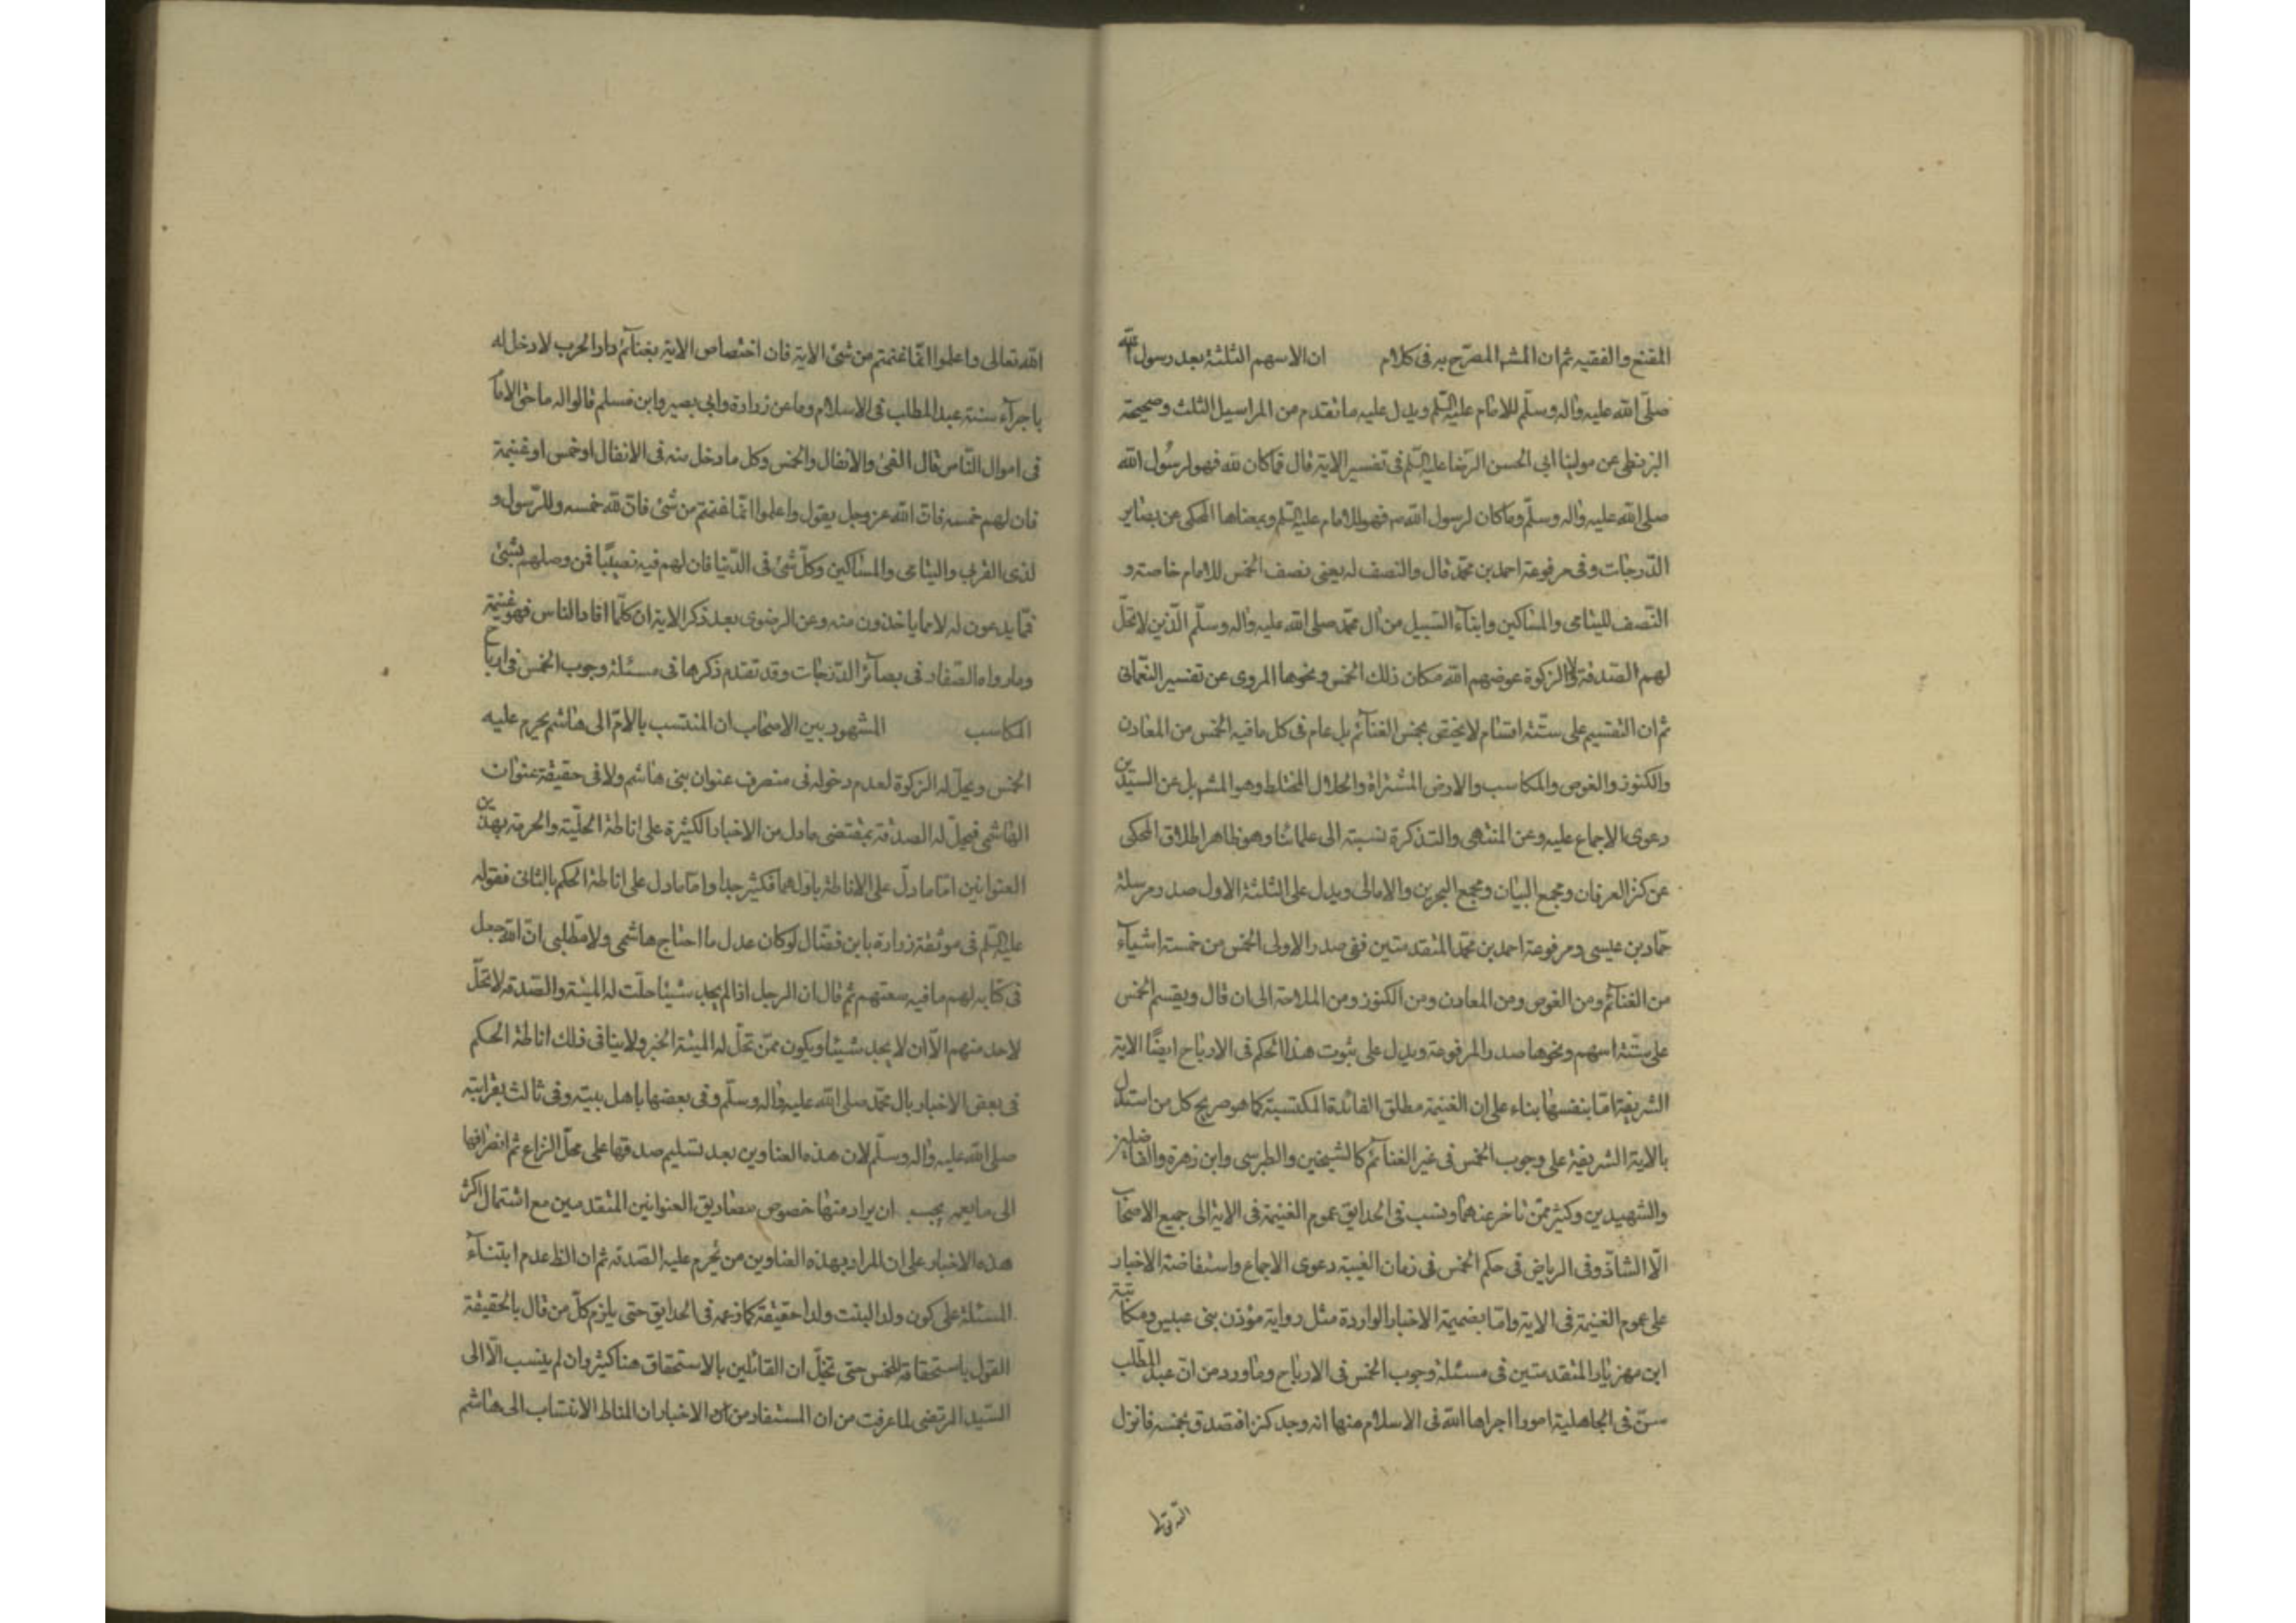 المقنع والفقيه ثم ان المشه المصرّح به فى كلام ان الاسهم الثلثة بعد رسول الله
صلّى الله عليه واله وسلّم للامام عليه السّلم ويدل عليه ما تقدم من المراسيل الثلث وصحيحة
البزنطى عن مولينا ابى الحسن الرّضا عليه السّلم فى تفسير الاية قال فما كان لله فهو لرسُول الله
صلى الله عليه واله وسلّم وما كان لرسول الله ص فهو للامام عليه السّلم وبمعناها المحكى عن بصاير
الدّرجات وفى مرفوعة احمد بن محمّد قال والنصف له يعنى نصف الخمس للامام خاصة و
النّصف لليتامى والمساكين وابناء السّبيل من ال محمّد صلى الله عليه واله وسلّم الّذين لا تحلّ
لهم الصّدقة ولا الزكوة عوضهم الله مكان ذلك الخمس ونحوها المروى عن تفسير النّعمانى
ثم ان التقسيم على ستّة اقسام لا يختص بخمس الغنآئم بل عام فى كل ما فيه الخمس من المعادن
والكنوز والغوص والمكاسب والارض المشتراة والحلال المختلط وهو المشه بل عن السيّدين
دعوى الاجماع عليه وعن المنتهى والتذكرة نسبته الى علمائنا وهو ظاهر اطلاق المحكى
عن كنز العرفان ومجمع البيان ومجمع البحرين والامالى ويدل على الثلثة الاول صدر مرسلة
حمّاد بن عيسى ومرفوعة احمد بن محمّد المتقدمتين ففى صدر الاولى الخمس من خمسة اشيآء
من الغنآئم ومن الغوص ومن المعادن ومن الكنوز ومن الملاحة الى ان قال ويقسم الخمس
على ستّة اسهم ونحوها صدر المرفوعة ويدل على ثبوت هذا الحكم فى الارباح ايضًا الاية
الشريفة امّا بنفسها بناء على ان الغنيمة مطلق الفائدة المكتسبة كما هو صريح كل من استدل
بالاية الشريفة على وجوب الخمس فى غير الغنآئم كالشيخين والطبرسى وابن زهرة والفاضلين
والشهيدين وكثير ممّن تاخر عنهما ونسب فى الحدايق عموم الغنيمة فى الاية الى جميع الاصحاب
الّا الشاذّ وفى الرياض فى حكم الخمس فى زمان الغيبة دعوى الاجماع واستفاضة الاخبار
على عموم الغنيمة فى الاية وامّا بضميمة الاخبار الواردة مثل رواية مؤذن بنى عبيس ومكاتبة
ابن مهزيار المتقدمتين فى مسئلة وجوب الخمس فى الارباح وما ورد من انّ عبد المطّلب
سنّ فى الجاهلية امورا اجراها الله فى الاسلام منها انه وجد كنزا فتصدق بخمسه فانزل
الله تعالى واعلموا انّما غنمتم من شئ الاية فان اختصاص الاية بغنآئم دار الحرب لا دخل له
باجرآء سنة عبد المطلب فى الاسلام وما عن زرارة وابى بصير وابن مسلم قالوا له ما حق الامام
فى اموال النّاس قال الفئ والانفال والخمس وكل ما دخل منه فى الانفال او خمس او غنيمة
فان لهم خمسه فانّ الله عز وجل يقول واعلموا انّما غنمتم من شئ فانّ لله خمسه وللرّسول و
لذى القربى واليتامى والمساكين وكلّ شئ فى الدّنيا فان لهم فيه نصيبًا فمن وصلهم بشئ
فما يدعون له لا مما ياخذون منه وعن الرضوى بعد ذكر الاية ان كلّما افاد الناس فهو غنيمة
وما رواه الصّفار فى بصآئر الدّرجات وقد تقدم ذكرها فى مسئلة وجوب الخمس فى ارباح
المكاسب المشهور بين الاصحاب ان المنتسب بالامّ الى هاشم يحرم عليه
الخمس ويحلّ له الزكوة لعدم دخوله فى منصرف عنوان بنى هاشم ولا فى حقيقة عنوان
الهاشمى فيحلّ له الصدقة بمقتضى ما دل من الاخبار الكثيرة على اناطة الحلّية والحرمة بهذين
العنوانين امّا ما دلّ على الاناطة باولهما فكثير جدا وامّا ما دل على اناطة الحكم بالثانى فقوله
عليه السّلم فى موثقة زرارة بابن فضّال لو كان عدل ما احتاج هاشمى ولا مطّلبى انّ الله جعل
فى كتابه لهم ما فيه سعتهم ثم قال ان الرجل اذا لم يجد شيئا حلّت له الميتة والصّدقة لا تحلّ
لاحد منهم الّا ان لا يجد شيئا ويكون ممّن تحلّ له الميتة الخبر ولا ينافى ذلك اناطة الحكم
فى بعض الاخبار بال محمّد صلى الله عليه واله وسلّم وفى بعضها باهل بيته وفى ثالث بقرابته
صلى الله عليه واله وسلّم لان هذه العناوين بعد تسليم صدقها على محلّ النزاع ثم انصرافها
الى ما يعمه يجب ان يراد منها خصوص مصاديق العنوانين المتقدمين مع اشتمال اكثر
هذه الاخبار على ان المراد بهذه العناوين من يحرم عليه الصّدقة ثم ان الظ عدم ابتنآء
المسئلة على كون ولد البنت ولدا حقيقة كما زعمه فى الحدايق حتى يلزم كلّ من قال بالحقيقة
القول باستحقاقه للخمس حتى تخيّل ان القائلين بالاستحقاق هنا كثير وان لم ينسب الّا الى
السّيد المرتضى لما عرفت من ان المستفاد من الاخبار ان المناط الانتساب الى هاشم